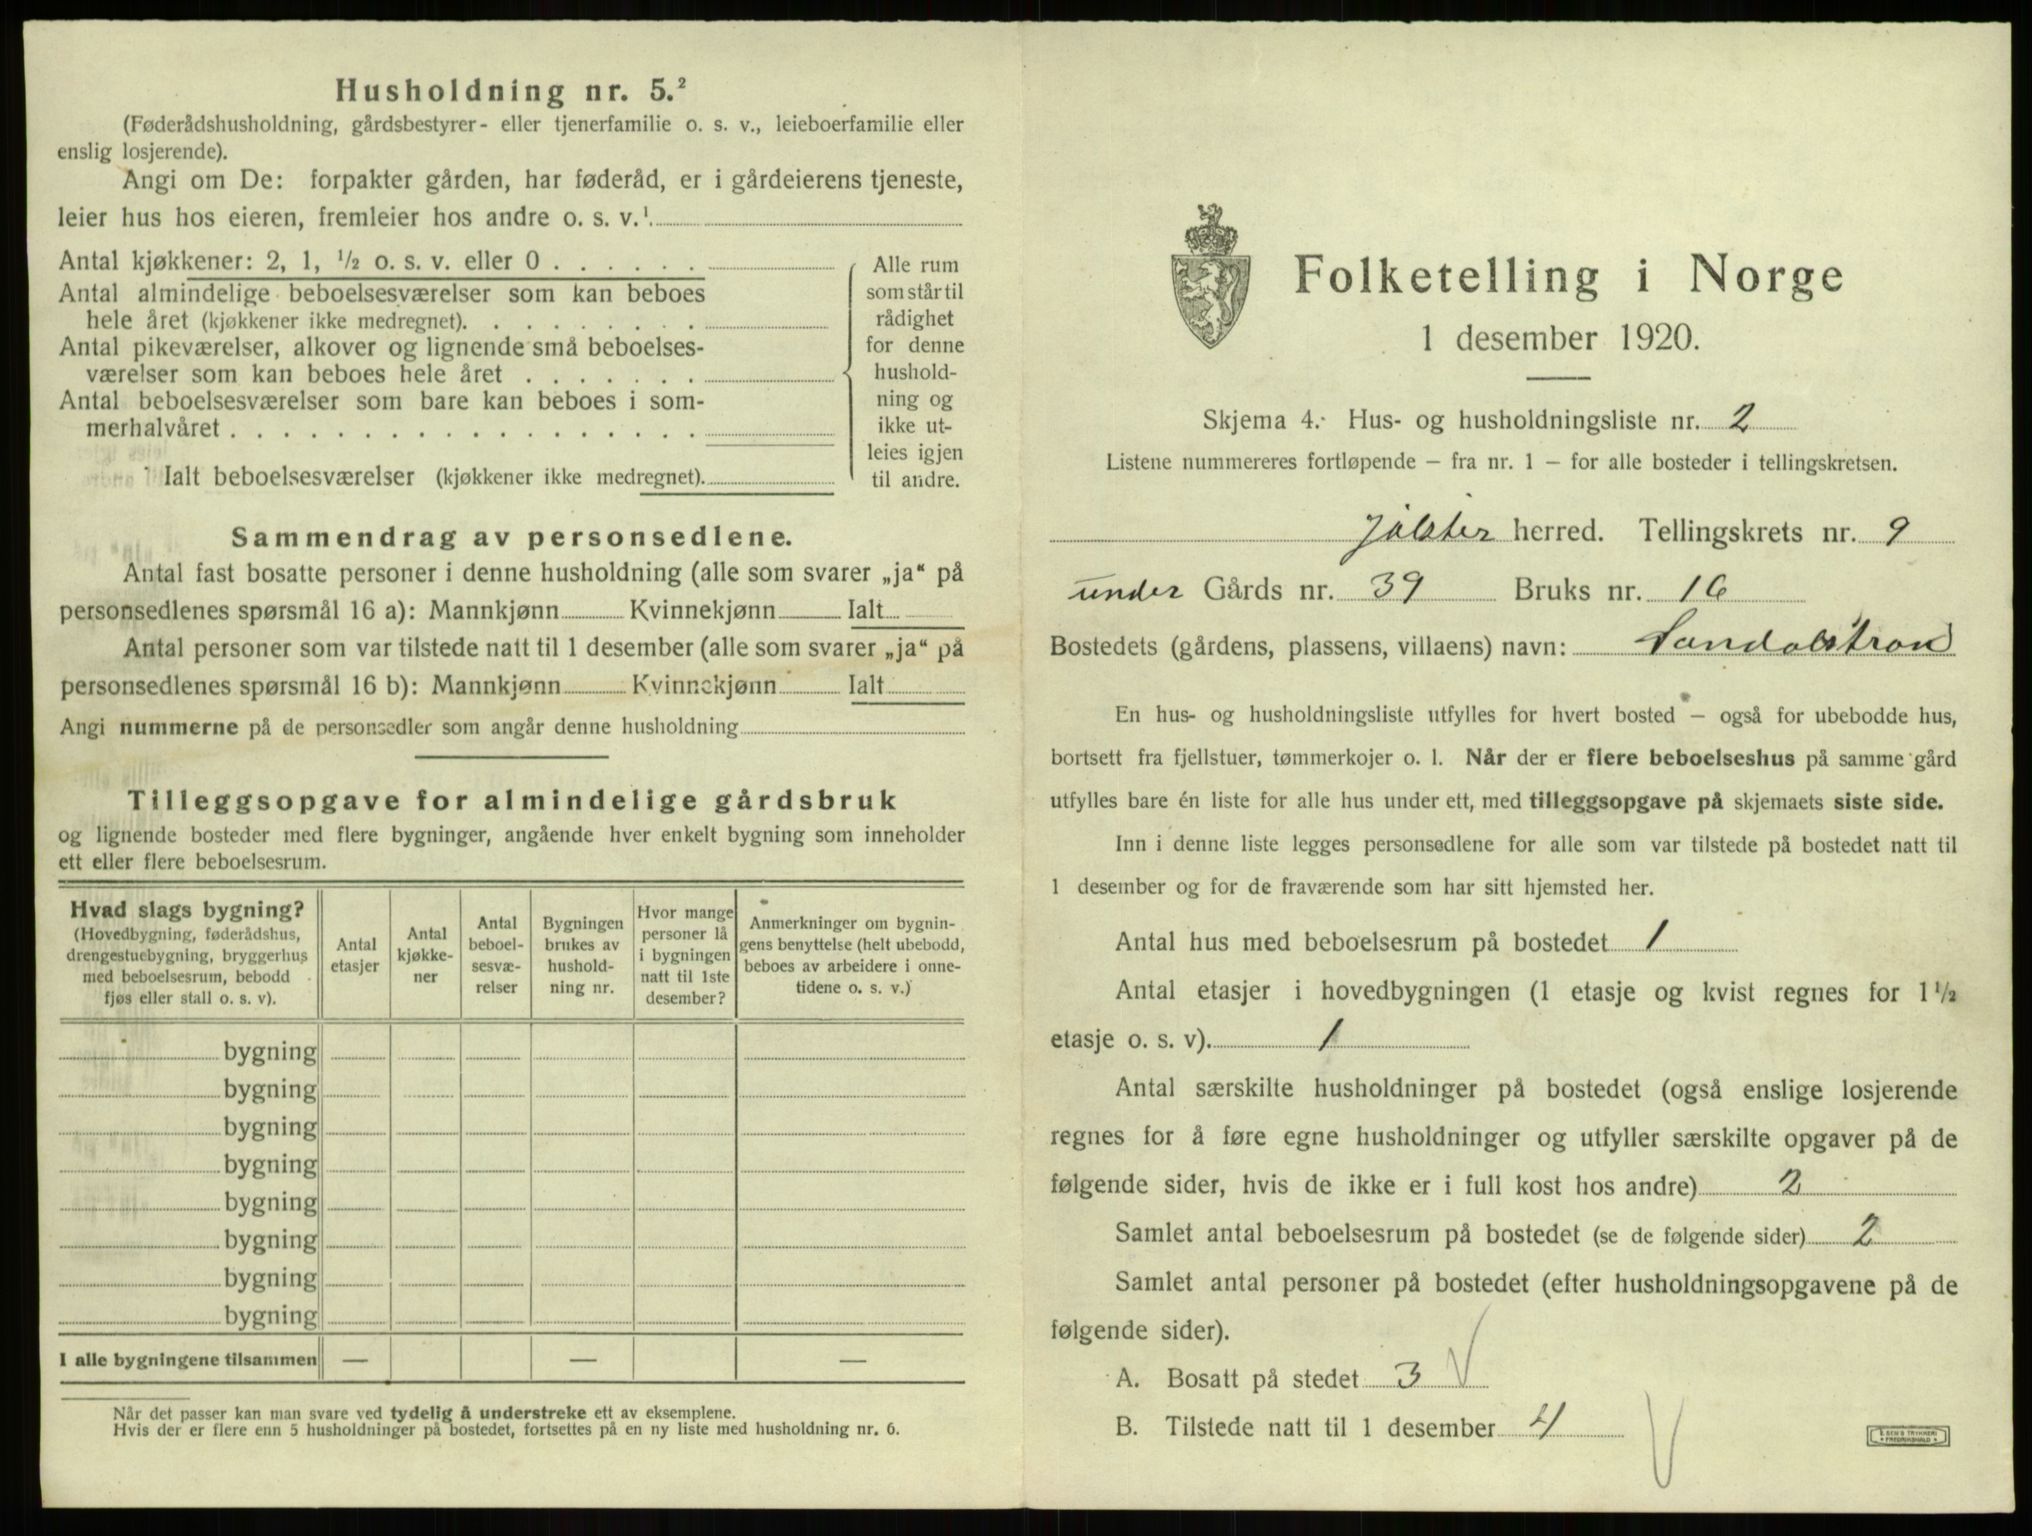 Husholdning nr. 5.²
(Føderådshusholdning, gårdsbestyrer- eller tjenerfamilie o. s. v., leieboerfamilie eller
enslig losjerende).
Angi om De: forpakter gården, har føderåd, er i gårdeierens tjeneste,
leier hus hos eieren, fremleier hos andre o. s. v.¹
Antal kjøkkener: 2, 1, ½ o. s. v. eller 0 . . . . . .
Antal almindelige beboelsesværelser som kan beboes
hele året (kjøkkener ikke medregnet). . . . . . . . .
Antal pikeværelser, alkover og lignende små beboelses-
værelser som kan beboes hele året . . . . . . .
Antal beboelsesværelser som bare kan beboes i som-
merhalvåret . . . . . . . . . . . . . . . . . .
Ialt beboelsesværelser (kjøkkener ikke medregnet).
Alle rum
som står til
rådighet
for denne
hushold-
ning og
ikke ut-
leies igjen
til andre.
Sammendrag av personsedlene.
Antal fast bosatte personer i denne husholdning (alle som svarer „ja“ på
personsedlenes spørsmål 16 a): Mannkjønn Kvinnekjønn Ialt
Antal personer som var tilstede natt til 1 desember (alle som svarer „ja“ på
personsedlenes spørsmål 16 b): Mannkjønn Kvinnekjønn Ialt
Angi nummerne på de personsedler som angår denne husholdning
Tilleggsopgave for almindelige gårdsbruk
og lignende bosteder med flere bygninger, angående hver enkelt bygning som inneholder
ett eller flere beboelsesrum.
Hvad slags bygning?
(Hovedbygning, føderådshus,
drengestuebygning, bryggerhus
med beboelsesrum, bebodd
fjøs eller stall o. s. v).
Antal
etasjer
Antal
kjøkke-
ner
Antal
beboel-
sesvæ-
relser
Bygningen
brukes av
hushold-
ning nr.
Hvor mange
personer lå
i bygningen
natt til 1ste
desember?
Anmerkninger om bygnin-
gens benyttelse (helt ubebodd,
beboes av arbeidere i onne-
tidene o. s. v.)
bygning
bygning
bygning
bygning
bygning
bygning
bygning
bygning
I alle bygningene tilsammen — — —
Når det passer kan man svare ved tydelig å understreke ett av eksemplene.
Hvis der er flere enn 5 husholdninger på bostedet, fortsettes på en ny liste med husholdning nr. 6.
Folketelling i Norge
1 desember 1920.
Skjema 4. Hus- og husholdningsliste nr. 2
Listene nummereres fortløpende — fra nr. 1 — for alle bosteder i tellingskretsen.
Jølster herred. Tellingskrets nr. 9
under Gårds nr. 39 Bruks nr. 16
Bostedets (gårdens, plassens, villaens) navn: Sandalstrand
En hus- og husholdningsliste utfylles for hvert bosted — også for ubebodde hus,
bortsett fra fjellstuer, tømmerkojer o. l. Når der er flere beboelseshus på samme gård
utfylles bare én liste for alle hus under ett, med tilleggsopgave på skjemaets siste side.
Inn i denne liste legges personsedlene for alle som var tilstede på bostedet natt til
1 desember og for de fraværende som har sitt hjemsted her.
Antal hus med beboelsesrum på bostedet 1
Antal etasjer i hovedbygningen (1 etasje og kvist regnes for 1 ½
etasje o. s. v). 1
Antal særskilte husholdninger på bostedet (også enslige losjerende
regnes for å føre egne husholdninger og utfyller særskilte opgaver på de
følgende sider, hvis de ikke er i full kost hos andre) 2
Samlet antal beboelsesrum på bostedet (se de følgende sider) 2
Samlet antal personer på bostedet (efter husholdningsopgavene på de
følgende sider).
A. Bosatt på stedet 3
B. Tilstede natt til 1 desember 4